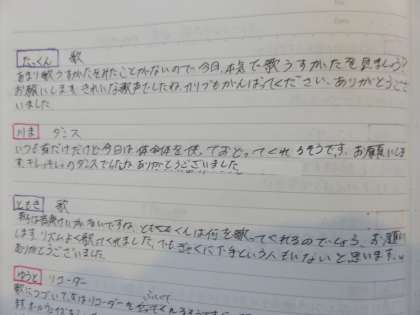 たっくん 歌
あまり歌うすがたをみたことがないので今日、本気で歌うすがたを見ましょう?
お願いします。きれいな歌声でしたね。がんばってください。ありがとうござ
いました。
りま ダンス
いつも首だけだけど今日は体全体を使っておどってくれるそうです。お願いしま
す。キレッキレのダンスでしたね。ありがとうございました。
ともき 歌
ともきくんは何を歌ってくれるのでしょう。お願い
します。リズムよく歌ってくれました。でもぎゃくに下手という人もいないと思います。
ありがとうございました。
ゆうと リコーダー
歌につづいて次はリコーダーを